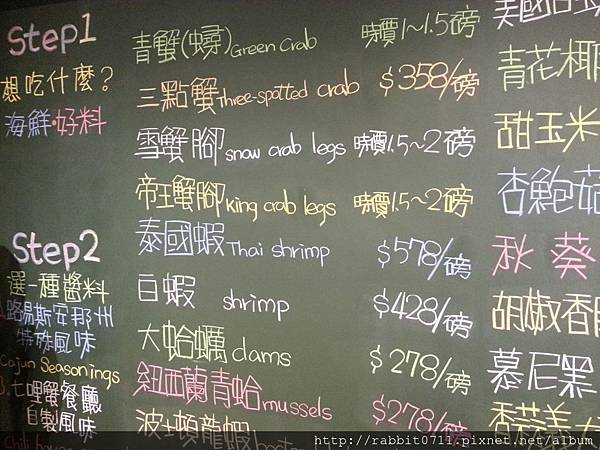 Step1
想吃什麼？
海鮮·好料
Step2
選一種醬料
路易斯安那州
特殊風味
Cajun Seasonings
3.七哩蟹餐廳
自製風味
青蟹(蟳)Green Crab 時價1~1.5磅
三點蟹Three-spotted crab $358/磅
雪蟹腳snow crab legs 時價1.5~2磅
帝王蟹腳king crab legs 時價1.5~2磅
泰國蝦Thai shrimp $578/磅
白蝦 shrimp $428/磅
大蛤蠣clams $278/磅
紐西蘭青蛤mussels $278/磅
波士頓龍蝦
美國
青花椰
甜玉米
杏鮑菇
秋葵
胡椒香
慕尼黑
香蒜美
http://rabbit0711.pixnet.net/album